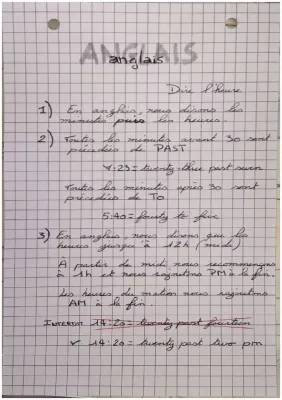 ANGLAIS
anglais
Dire l'heure
1) En anglais, nous disons les
minutes puis les heures.
2) Toutes les minutes avant 30 sont
précédés de PAST
:23 = twenty-three past seven
Toutes les minutes après 30 sont
précédés de TO
5:40 = to five
3) En anglais, nous disons que les
heures jusqu'à 12h (midi)
A partir de midi nous recommençons
à 1h et nous rajoutons PM à la fin.
Les heures du matin nous rajoutons
AM à la fin.
INTERDIT 14:20 = twenty past fourteen
✓ 14:20 = twenty past two pm